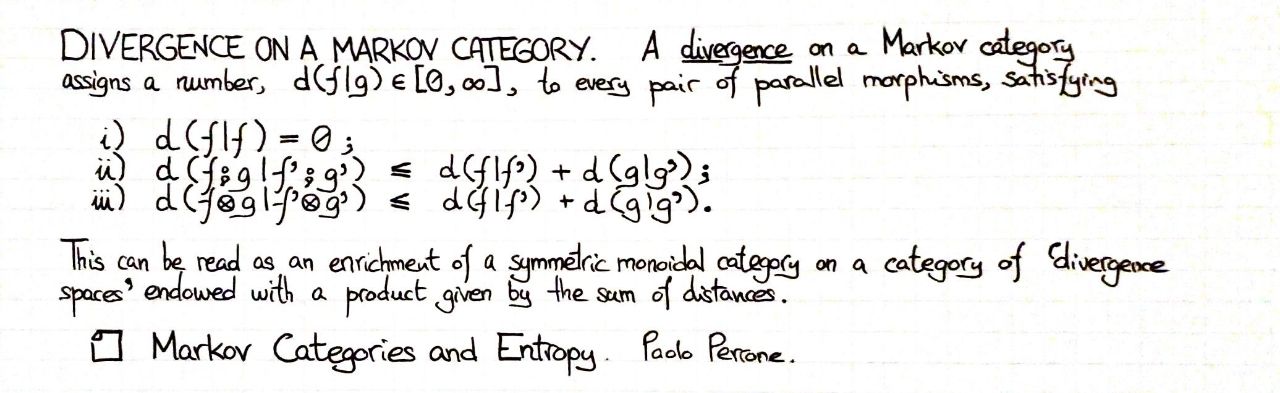 DIVERGENCE ON A MARKOV CATEGORY. A divergence on a Markov category
assigns a number, d(f|g) ∈ [0,∞], to every pair of parallel morphisms, satisfying
i) d(f|f) = 0;
ii) d(f⨾g|f'⨾g') ≤ d(f|f') + d(g|g');
iii) d(f⊗g|f'⊗g') ≤ d(f|f') + d(g|g').
This can be read as an enrichment of a symmetric monoidal category on a category of 'divergence
spaces' endowed with a product given by the sum of distances.
Markov Categories and Entropy. Paolo Perrone.